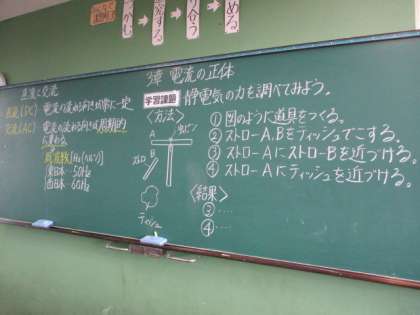 つかむ
める
直流と交流
直流(DC) 電流の流れる向きが常に一定
交流(AC) 電流の流れる向きが周期的
に変わる
周波数[Hz(ヘルツ)]
東日本 50Hz
西日本 60Hz
3章 電流の正体
学習課題 静電気の力を調べてみよう。
〈方法〉
A
虫ピン
ストロー
B
ティッシュ
① 図のように道具をつくる。
② ストローA,Bをティッシュでこする。
③ ストローAにストローBを近づける。
④ ストローAにティッシュを近づける。
〈結果〉
③ ‥‥
④ ‥‥